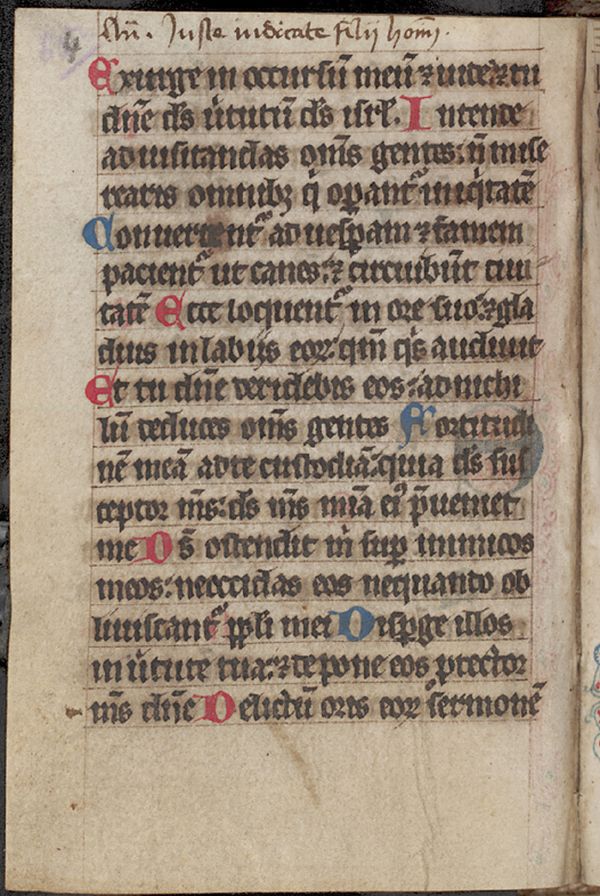 4
Añ. Juste iudicate filij homĩ.
Exurge in occursũ meũ ⁊ uide ⁊ tu
dñe ds ũtutũ ds isrl. Intende
ad uisitandas om̃s gentes: ñ mise
rearis omnibꝫ q̇ oꝑantᷣ iniq̇tatẽ
Conuertentᷣ ad uesꝑam ⁊ famem
pacientᷣ ut canes: ⁊ circuibũt ciui
tatẽ Ecce loquentᷣ in ore suo: ⁊ gla
dius in labijs eoꝝ: qm̃ q̇s audiuit
Et tu dñe deridebis eos: ad nichi
lũ deduces om̃s gentes Fortitudi
nẽ meã ad te custodiã: quia ds sus
ceptor m̃s: ds m̃s mĩa eiꝰ p̃ueniet
me Ds̃ ostendit m̃ suꝑ inimicos
meos: ne occidas eos nequando ob
liuiscantᷣ ppl̃i mei Disꝑge illos
in ũtute tua: ⁊ depone eos ꝓtector
m̃s dñe Delictũ oris eoꝝ sermonẽ